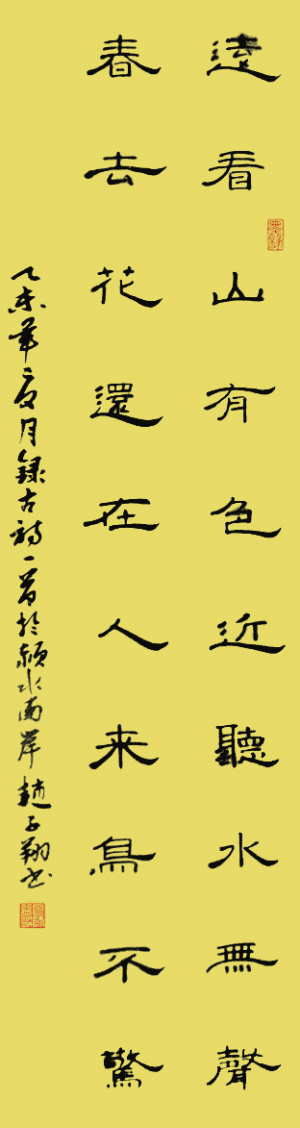 遠看山有色近聽水無聲
春去花還在人来鳥不驚
乙未年二月錄古詩一首於潁水西岸趙子翔书